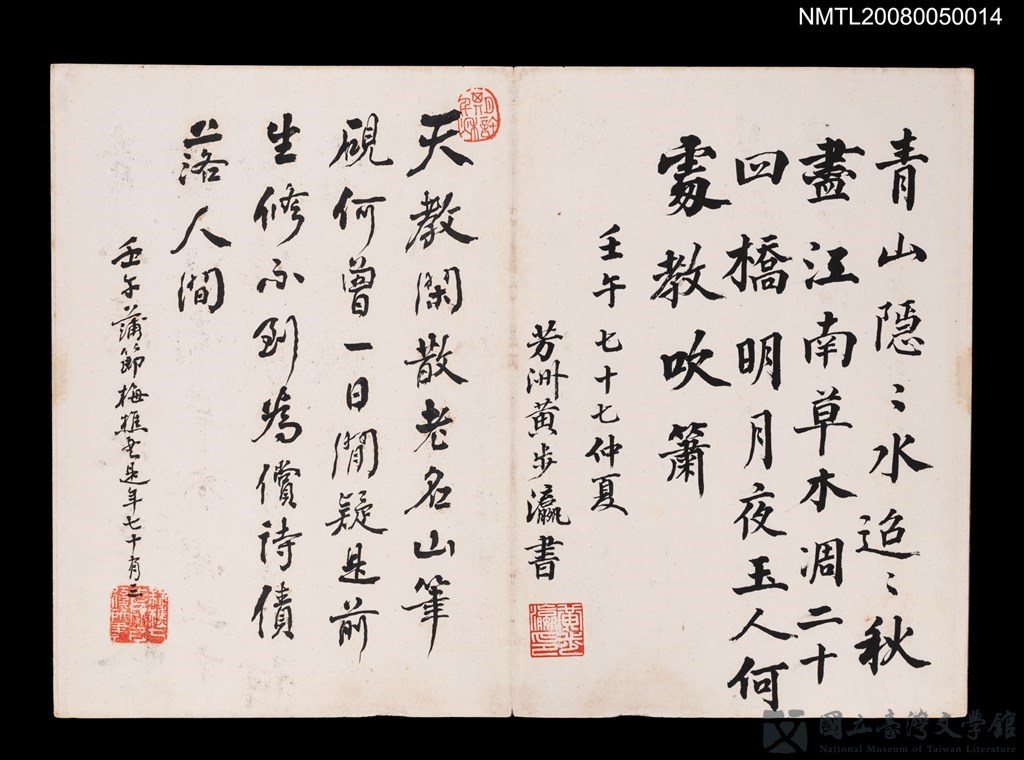 NMTL20080050014
青山隱〻水迢〻秋
盡江南草木凋二十
四橋明月夜玉人何
處教吹簫
壬午七十七仲夏
芳洲黃步瀛書
黃步瀛印
天教閑散老名山筆
硯何曾一日閒疑是前
生修不到為償詩債
落人間
壬午蒲節梅樵書是年七十有三
國立臺灣文學館
National Museum of Taiwan Literature